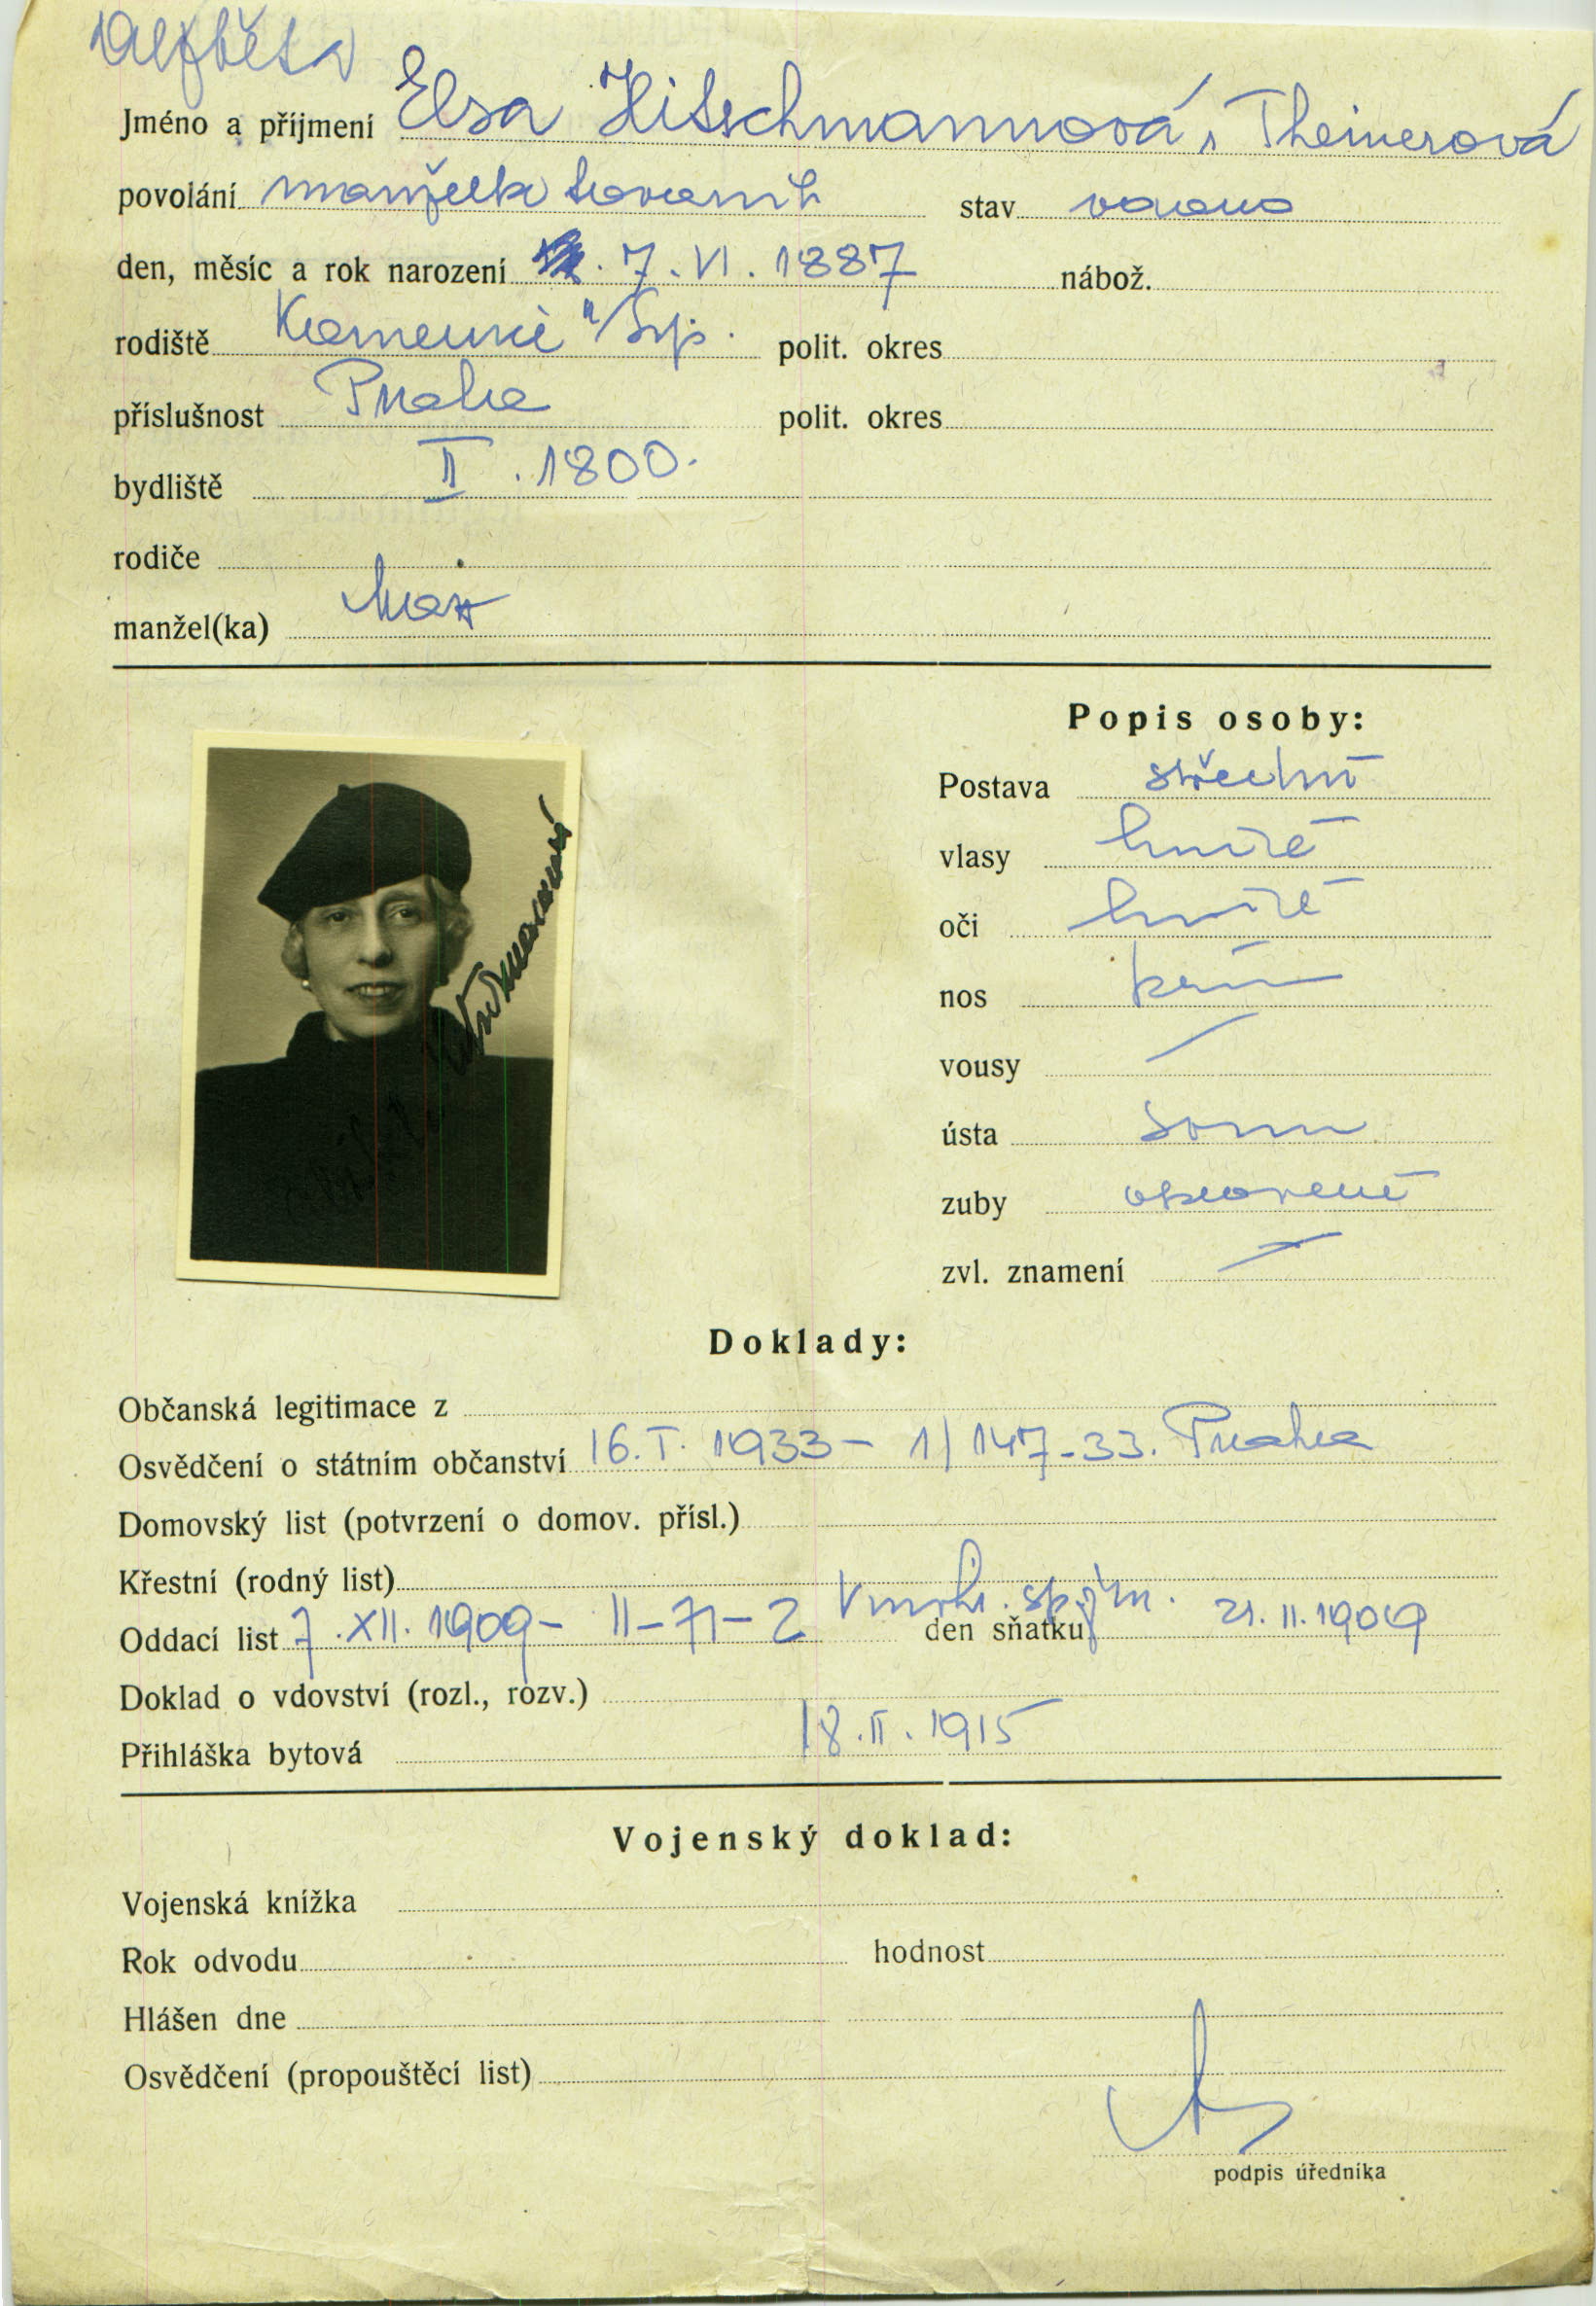 Alžběta
Jméno a příjmení Elsa Hitschmannová, Theinerová
povolání manželka továrník stav vdaná
den, měsíc a rok narození 7. VI. 1887 nábož.
rodiště Kamenice n/ polit. okres
příslušnost Praha polit. okres
bydliště II. 1800.
rodiče
manžel(ka) Max
Popis osoby:
Postava střední
vlasy hnědé
oči hnědé
nos
vousy
ústa
zuby opravené
zvl. znamení
Doklady:
Občanská legitimace z
Osvědčení o státním občanství 16. I. 1933 – 1/147-33. Praha
Domovský list (potvrzení o domov. přísl.)
Křestní (rodný list)
Oddací list 7. XII. 1909 – II-71-2 den sňatku 21. II. 1909
Doklad o vdovství (rozl., rozv.)
Přihláška bytová 18. II. 1915
Vojenský doklad:
Vojenská knížka
Rok odvodu hodnost
Hlášen dne
Osvědčení (propouštěcí list)
podpis úředníka